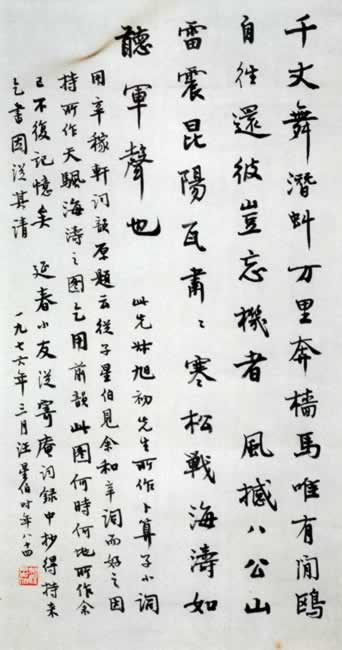 千丈舞潛虯万里奔檣馬唯有閒鷗
自往還彼豈忘機者 風撼八公山
雷震昆陽瓦肅〻寒松戰海濤如
聽軍聲也 此先叔旭初先生所作卜算子小詞
用辛稼軒詞韻原題云從子星伯見余和辛詞而好之因
持所作天颿海濤之圖乞用前韻此圖何時何地所作余
已不復記憶矣 延春小友從寄庵詞錄中抄得持來
乞書因從其請 一九七六年三月汪星伯时年八四